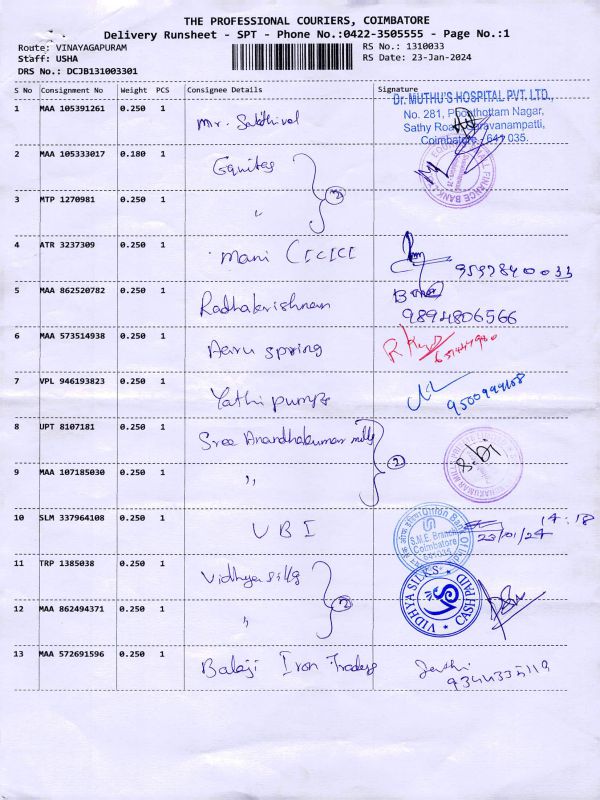 THE PROFESSIONAL COURIERS, COIMBATORE
Delivery Runsheet - SPT - Phone No.:0422-3505555 - Page No.:1
Route: VINAYAGAPURAM
RS No.: 1310033
Staff: USHA
RS Date: 23-Jan-2024
DRS No.: DCJB131003301
S No Consignment No Weight PCS Consignee Details Signature
Dr. MUTHU'S HOSPITAL PVT. LTD.,
No. 281, Poonthottam Nagar,
Sathy Road, Saravanampatti,
Coimbatore - 641 035.
1 MAA 105391261 0.250 1 Mr. Sakthival
2 MAA 105333017 0.180 1 Equitas
FINANCE BANK
3 MTP 1270981 0.250 1 " 2
4 ATR 3237309 0.250 1 Mani (ICICI
5 MAA 862520782 0.250 1 Radhakrishnan
9894806566
6 MAA 573514938 0.250 1 Aaru spring
7 VPL 946193823 0.250 1 Yathi pumps
8 UPT 8107181 0.250 1 Sree Anandhakumar mills
9 MAA 107185030 0.250 1 " 2
10 SLM 337964108 0.250 1 UBI
Union Bank Of India
S.M.E. Branch
Coimbatore
641035
14:18
23/01/24
11 TRP 1385038 0.250 1 Vidhya sills
VIDHYA SILKS CASH PAID
12 MAA 862494371 0.250 1 " 2
13 MAA 572691596 0.250 1 Balaji Iron Traders
9344335119